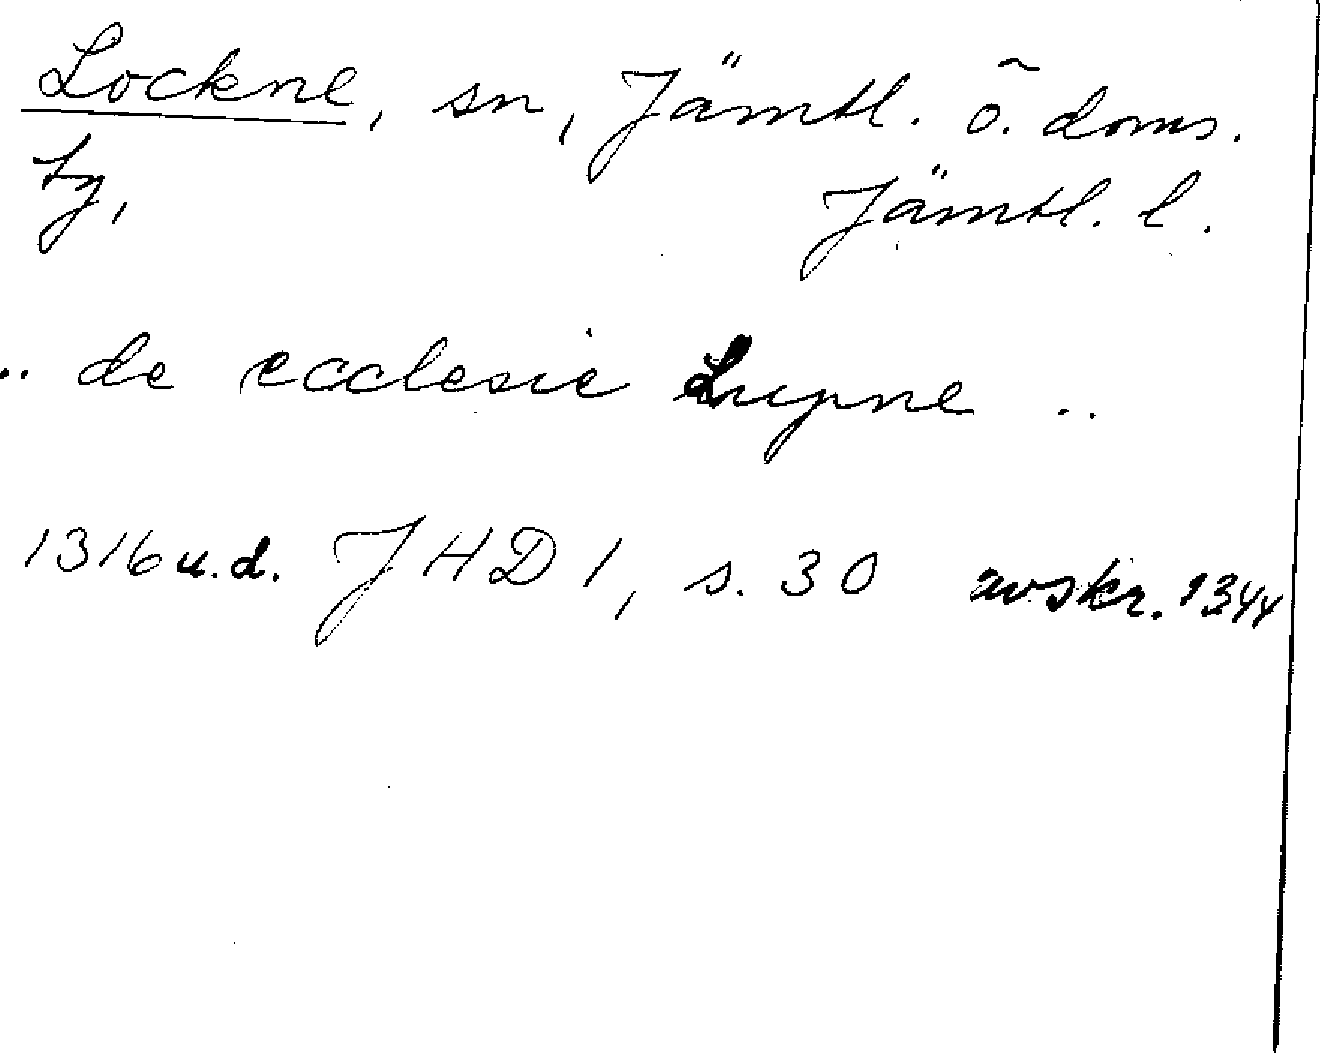 Lockne, sn, Jämtl. ö. doms.
tg,
Jämtl. l.
.. de ecclesie Lupne ..
1316 u.d. JHD 1, s. 30 avskr. 1344